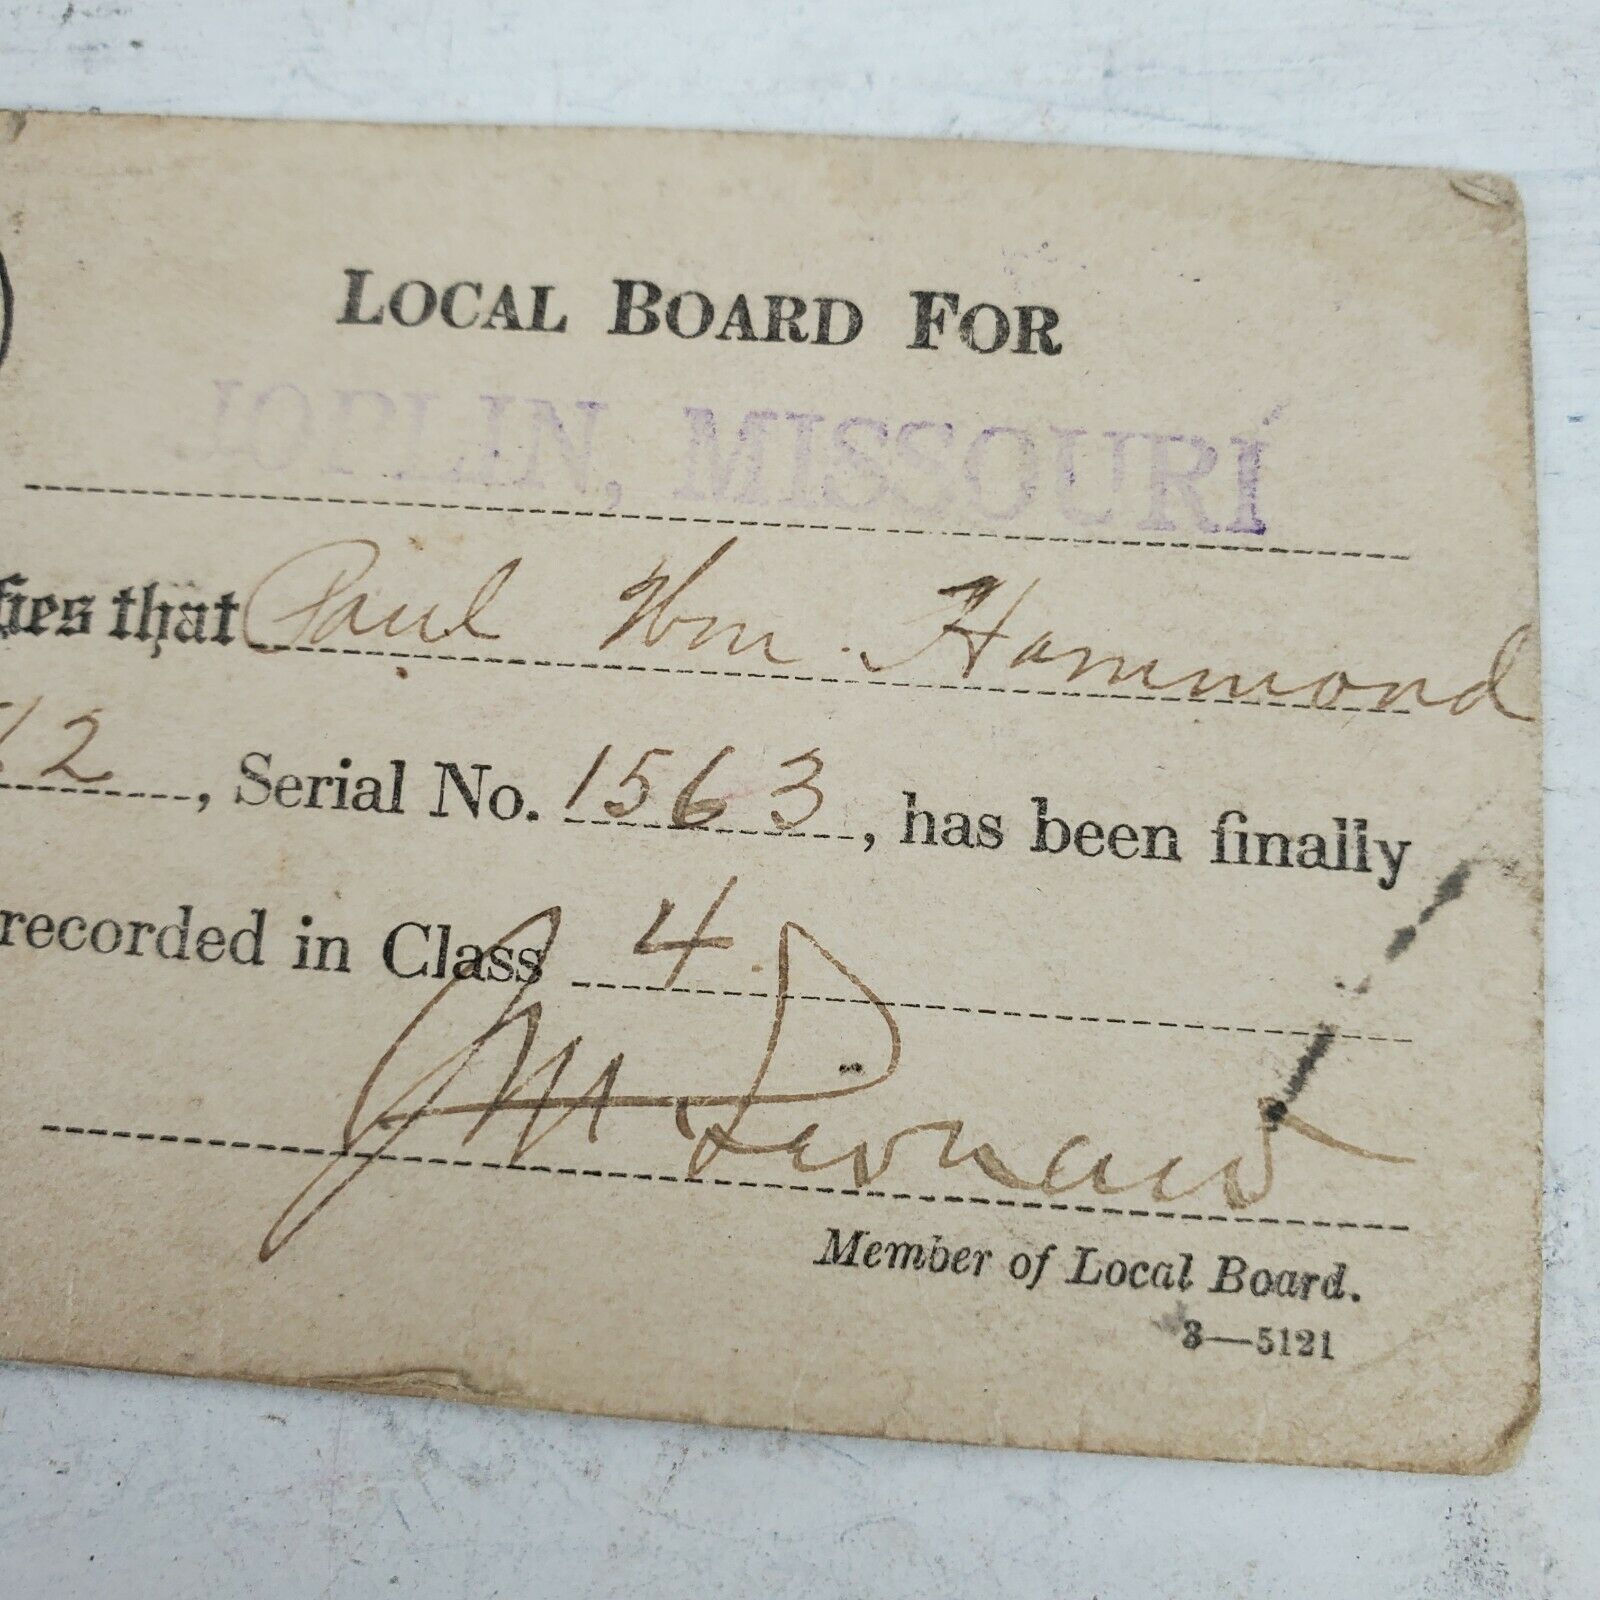 LOCAL BOARD FOR
JOPLIN, MISSOURI
fies that Paul Wm. Hammond
12, Serial No. 1563, has been finally
recorded in Class 4.
Member of Local Board.
3—5121